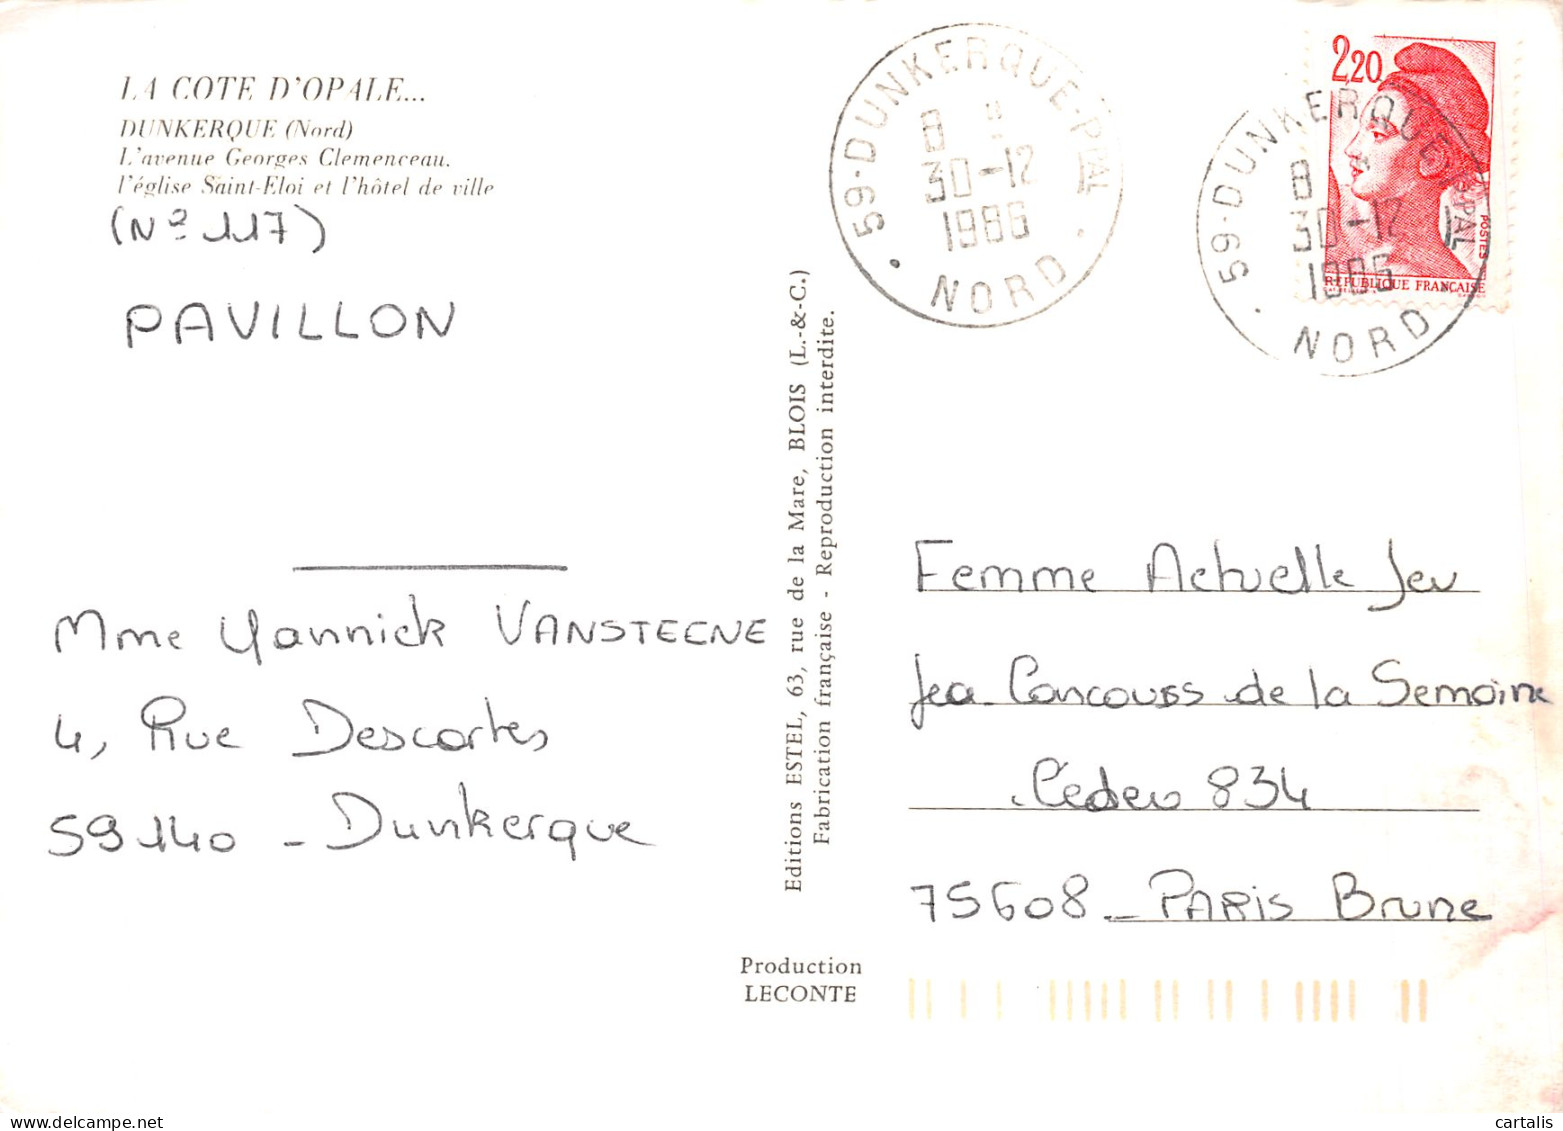 LA COTE D'OPALE...
DUNKERQUE (Nord)
L'avenue Georges Clemenceau,
l'église Saint-Eloi et l'hôtel de ville
(Nº 117)
PAVILLON
Mme Yannick VANSTEENE
4, Rue Descartes
59140 - Dunkerque
Editions ESTEL, 63, rue de la Mare, BLOIS (L.-&-C.)
Fabrication française - Reproduction interdite.
Production
LECONTE
59-DUNKERQUE-PPAL
8
30-12
1986
NORD
2,20
POSTES
RÉPUBLIQUE FRANÇAISE
59-DUNKERQUE-PPAL
8
30-12
1986
NORD
Femme Actuelle Jeu
Jeu Concours de la Semaine
Cédex 834
75608 - PARIS Brune
cartalis